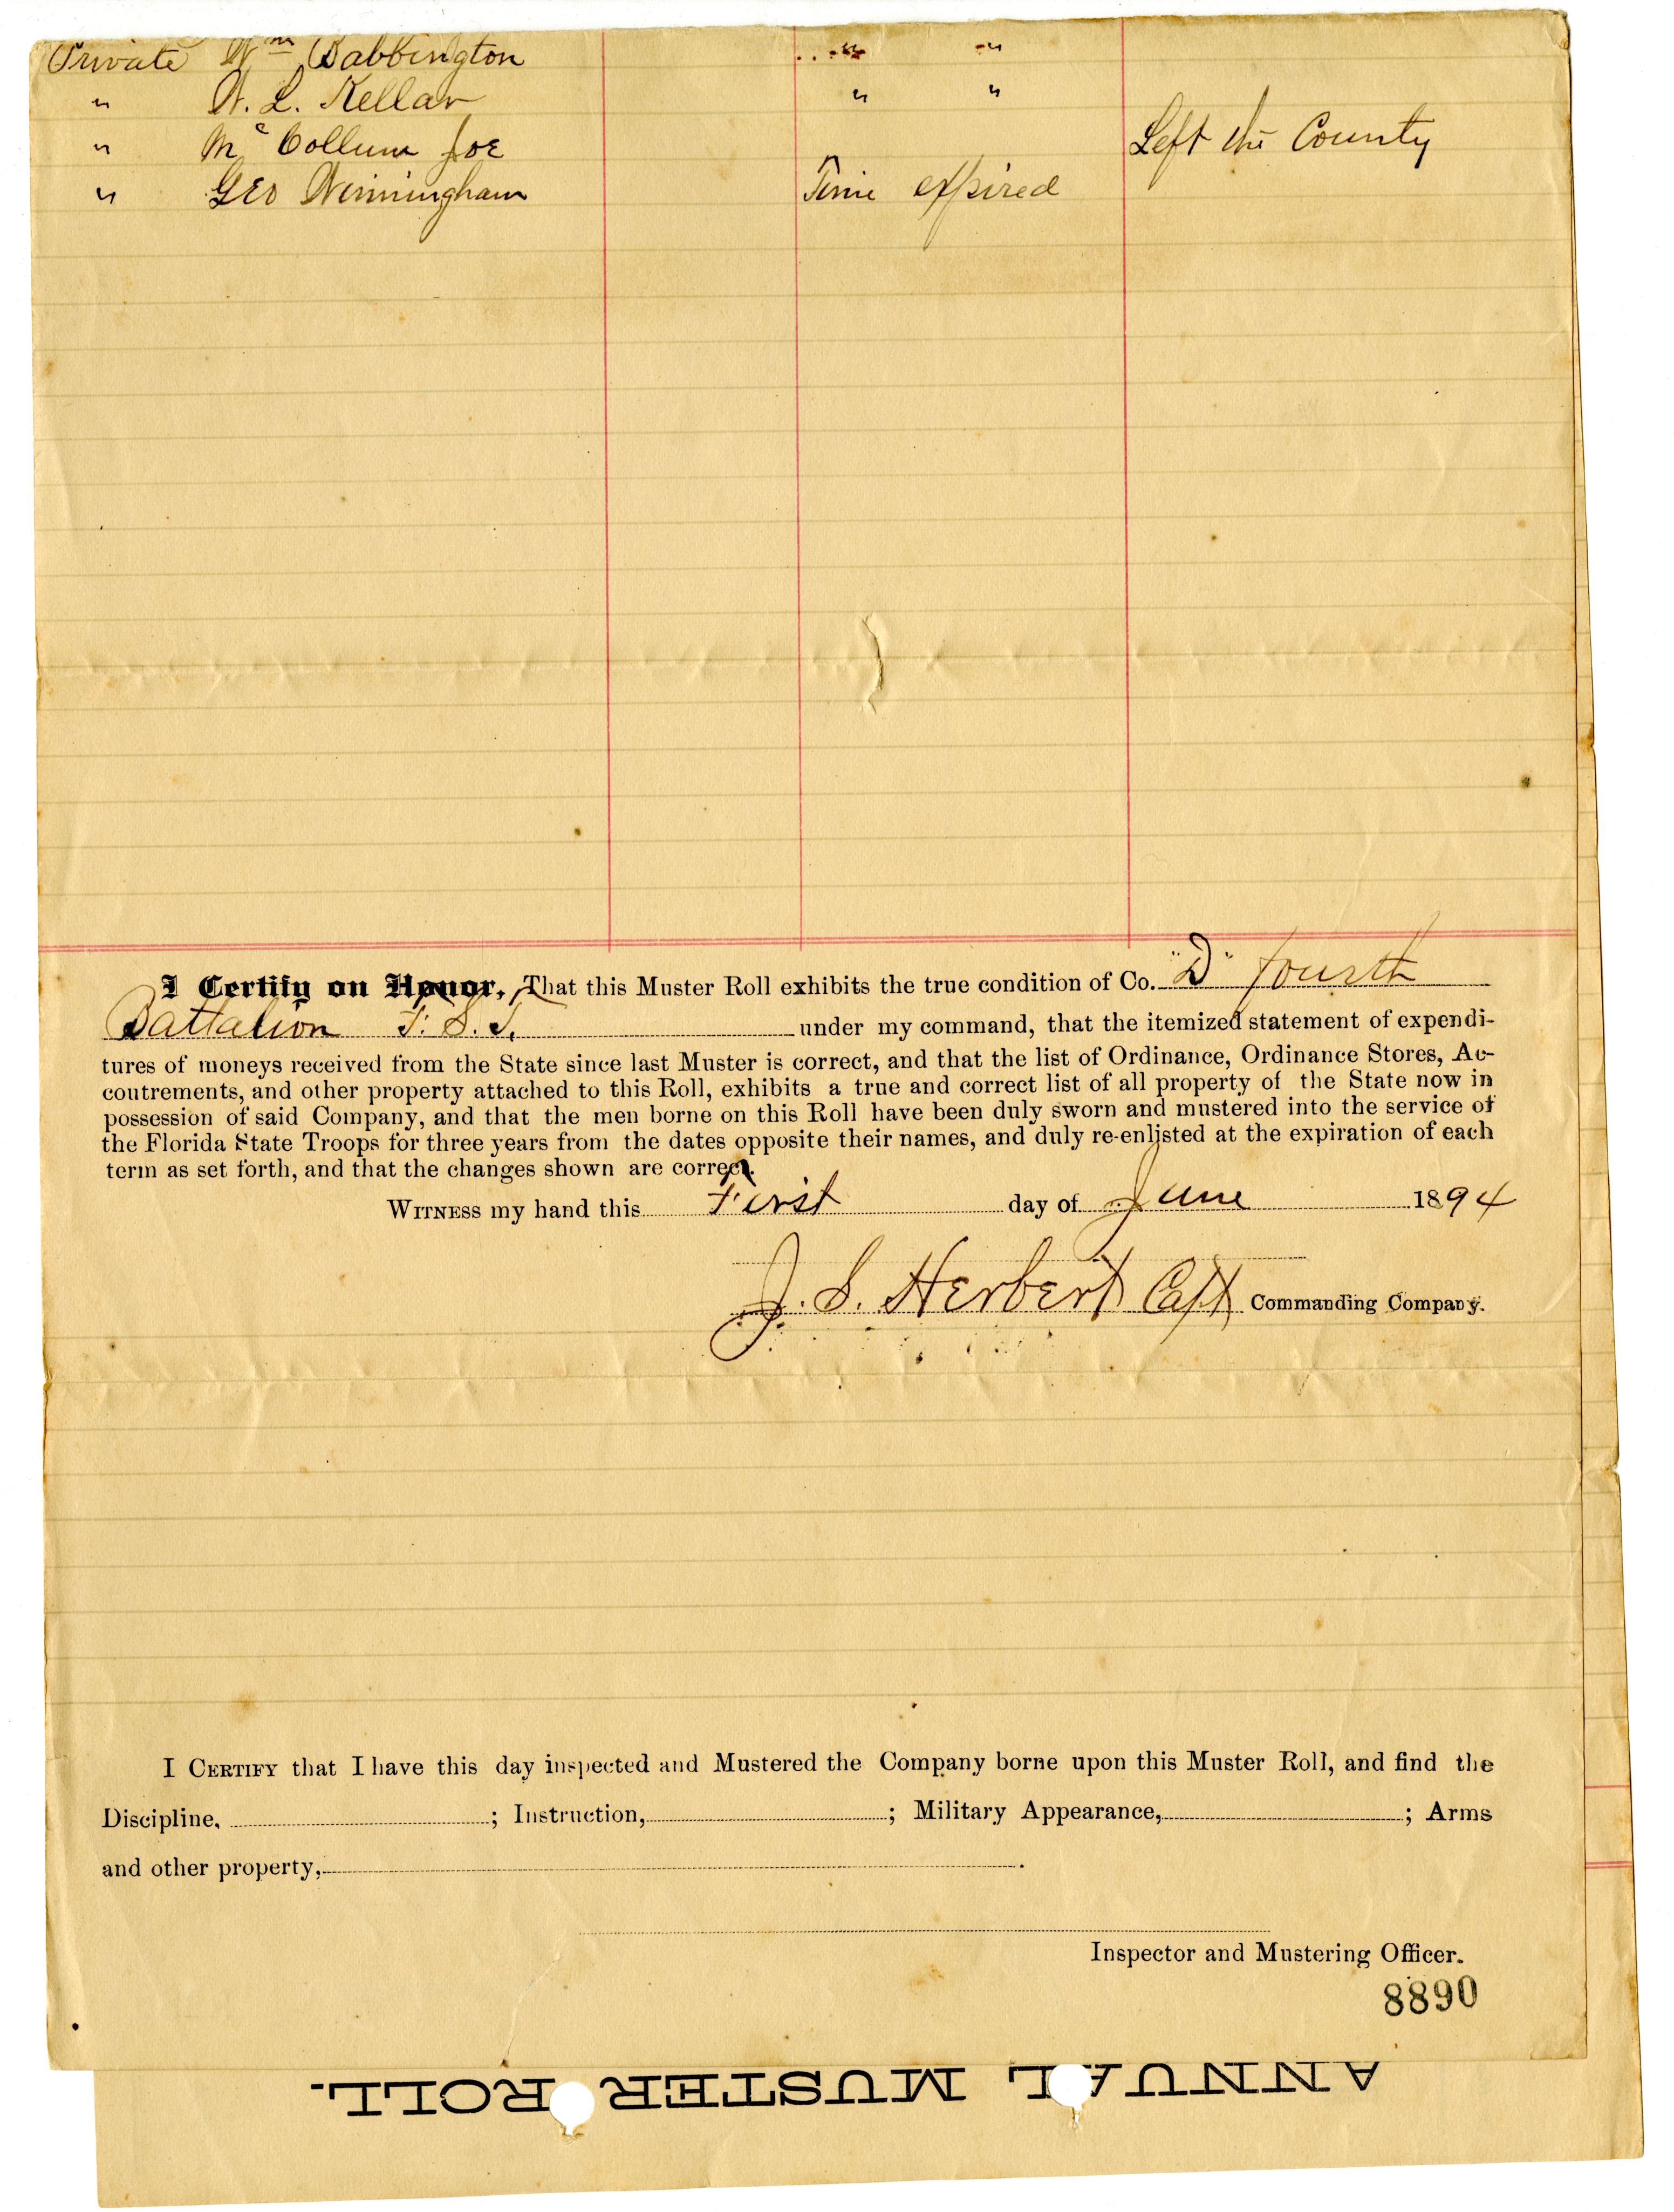 Private Wm Babbington " "
" W. L. Kellar " "
" Mc Collum Joe Left the County
" Geo Winningham Time expired
I Certify on Honor, That this Muster Roll exhibits the true condition of Co. "D" fourth
Battalion F. S. T. under my command, that the itemized statement of expendi-
tures of moneys received from the State since last Muster is correct, and that the list of Ordinance, Ordinance Stores, Ac-
coutrements, and other property attached to this Roll, exhibits a true and correct list of all property of the State now in
possession of said Company, and that the men borne on this Roll have been duly sworn and mustered into the service of
the Florida State Troops for three years from the dates opposite their names, and duly re-enlisted at the expiration of each
term as set forth, and that the changes shown are correct.
WITNESS my hand this First day of June 1894
J. S. Herbert Capt Commanding Company.
I CERTIFY that I have this day inspected and Mustered the Company borne upon this Muster Roll, and find the
Discipline, ; Instruction, ; Military Appearance, ; Arms
and other property, .
Inspector and Mustering Officer.
8890
ANNUAL MUSTER ROLL.